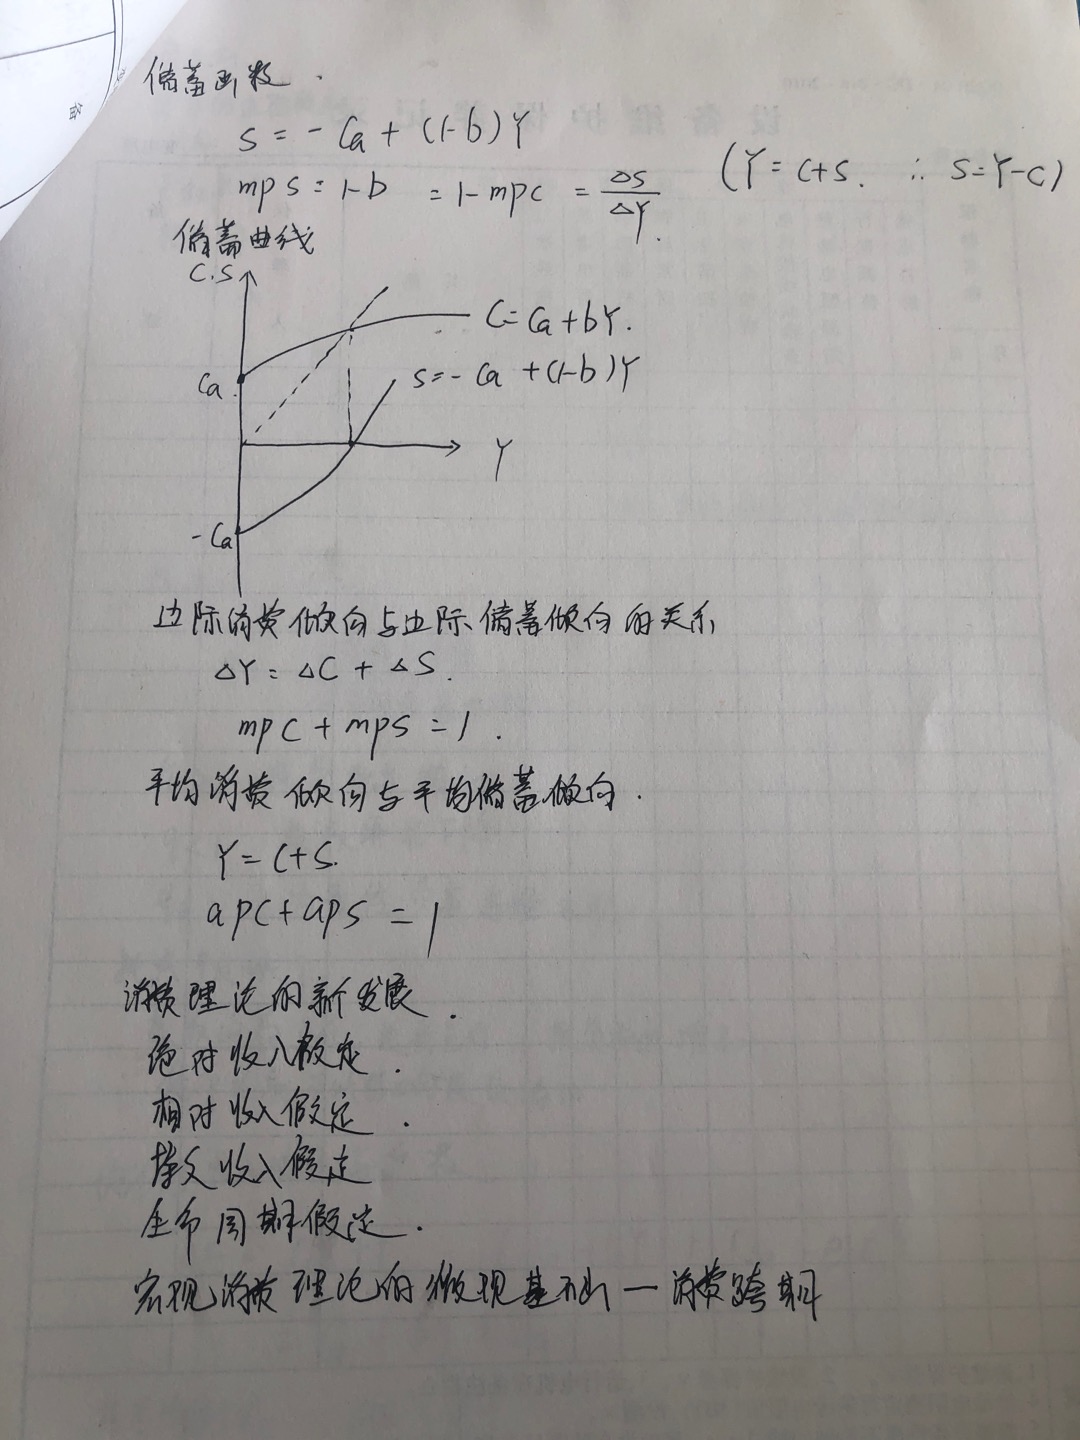 储蓄函数.
S = - Ca + (1-b)Y
mps = 1-b = 1-mpc = ΔS/ΔY.
(Y = C+S. ∴ S=Y-C)
储蓄曲线
C.S
C=Ca+bY.
S=-Ca+(1-b)Y
Ca
Y
-Ca
边际消费倾向与边际储蓄倾向的关系
ΔY = ΔC + ΔS.
mpc + mps = 1.
平均消费倾向与平均储蓄倾向.
Y = C+S.
apc+aps = 1
消费理论的新发展.
绝对收入假定.
相对收入假定.
收入假定
生命周期假定.
宏观消费理论的微观基础一消费跨期